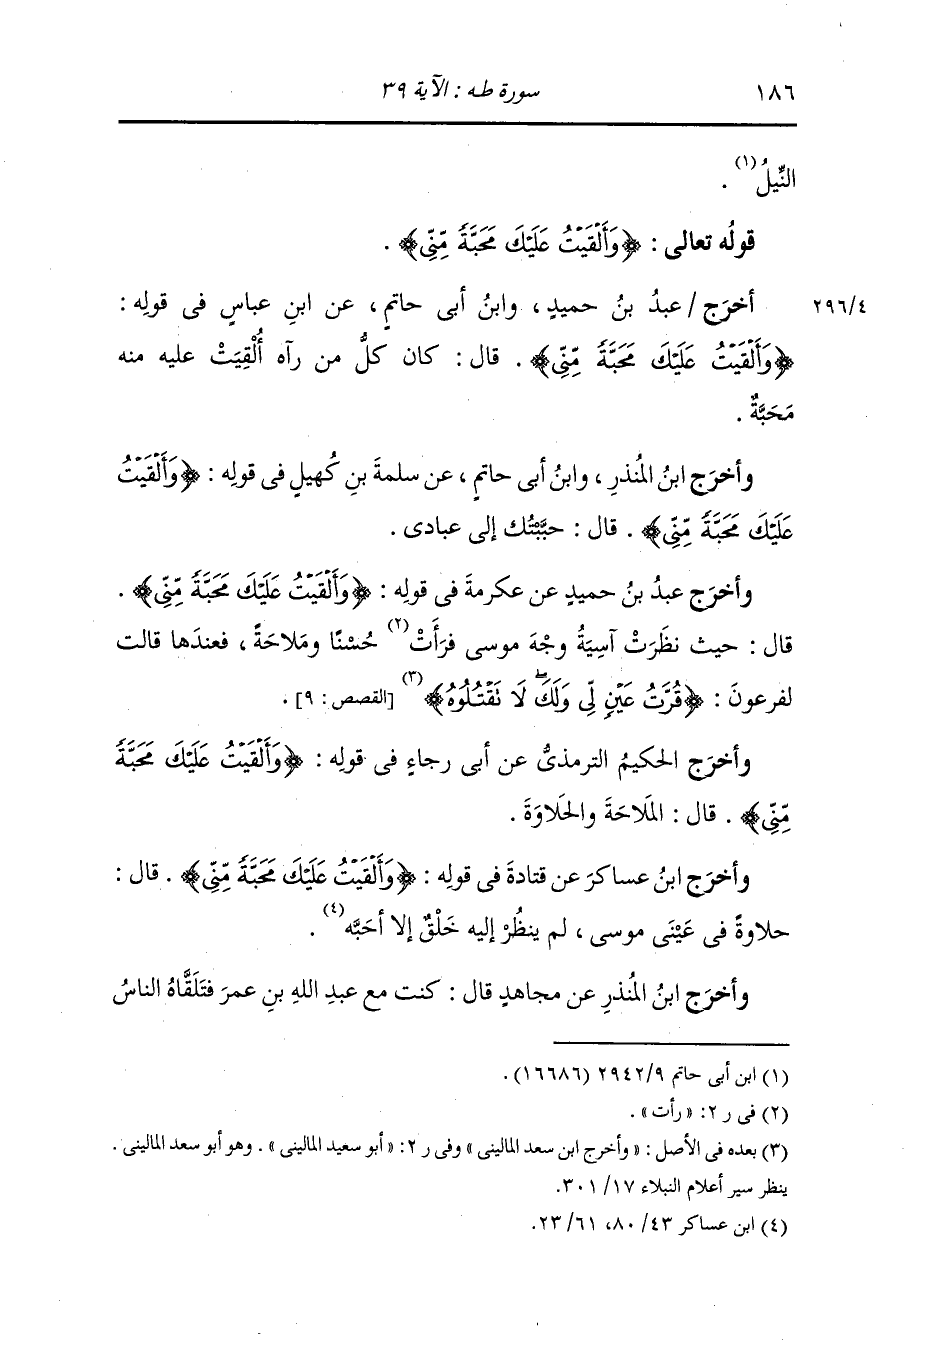 ١٨٦ سورة طه : الآية ٣٩
النِّيلُ(١) .
قولُه تعالى : ﴿وَأَلْقَيْتُ عَلَيْكَ مَحَبَّةً مِّنِّي﴾ .
٢٩٦/٤ أخرَج / عبدُ بنُ حميدٍ ، وابنُ أبى حاتمٍ ، عن ابنِ عباسٍ فى قولِه :
﴿وَأَلْقَيْتُ عَلَيْكَ مَحَبَّةً مِّنِّي﴾ . قال : كان كلُّ من رآه أُلْقِيَتْ عليه منه
مَحَبَّةٌ .
وأخرَج ابنُ المُنذرِ ، وابنُ أبى حاتمٍ ، عن سلمةَ بنِ كُهيلٍ فى قولِه : ﴿وَأَلْقَيْتُ
عَلَيْكَ مَحَبَّةً مِّنِّي﴾ . قال : حبَّبْتُك إلى عبادى .
وأخرَج عبدُ بنُ حميدٍ عن عكرمةَ فى قولِه : ﴿وَأَلْقَيْتُ عَلَيْكَ مَحَبَّةً مِّنِّي﴾ .
قال : حيث نظَرَتْ آسيَةُ وجْهَ موسى فرَأَتْ(٢) حُسْنًا ومَلاحَةً ، فعندَها قالت
لفرعونَ : ﴿قُرَّتُ عَيْنٍ لِّي وَلَكَۖ لَا تَقْتُلُوهُ﴾(٣) [القصص : ٩] .
وأخرَج الحكيمُ الترمذىُّ عن أبى رجاءٍ فى قولِه : ﴿وَأَلْقَيْتُ عَلَيْكَ مَحَبَّةً
مِّنِّي﴾ . قال : المَلاحَةَ والحَلاوَةَ .
وأخرَج ابنُ عساكرَ عن قتادةَ فى قولِه : ﴿وَأَلْقَيْتُ عَلَيْكَ مَحَبَّةً مِّنِّي﴾ . قال :
حلاوةً فى عَيْنَى موسى ، لم ينظُرْ إليه خَلْقٌ إلا أحَبَّه(٤) .
وأخرَج ابنُ المُنذرِ عن مجاهدٍ قال : كنت مع عبدِ اللهِ بنِ عمرَ فتَلَقَّاهُ الناسُ
(١) ابن أبى حاتم ٢٩٤٢/٩ (١٦٦٨٦) .
(٢) فى ر ٢: « رأت » .
(٣) بعده فى الأصل : « وأخرج ابن سعد المالينى » وفى ر ٢: « أبو سعيد المالينى » . وهو أبو سعد المالينى .
ينظر سير أعلام النبلاء ١٧/ ٣٠١.
(٤) ابن عساكر ٤٣/ ٨٠، ٦١/ ٢٣.